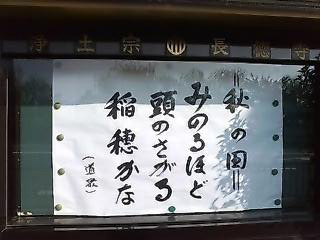 浄土宗 長徳寺
＝秋の田＝
みのるほど
頭のさがる
稲穂かな
（道歌）